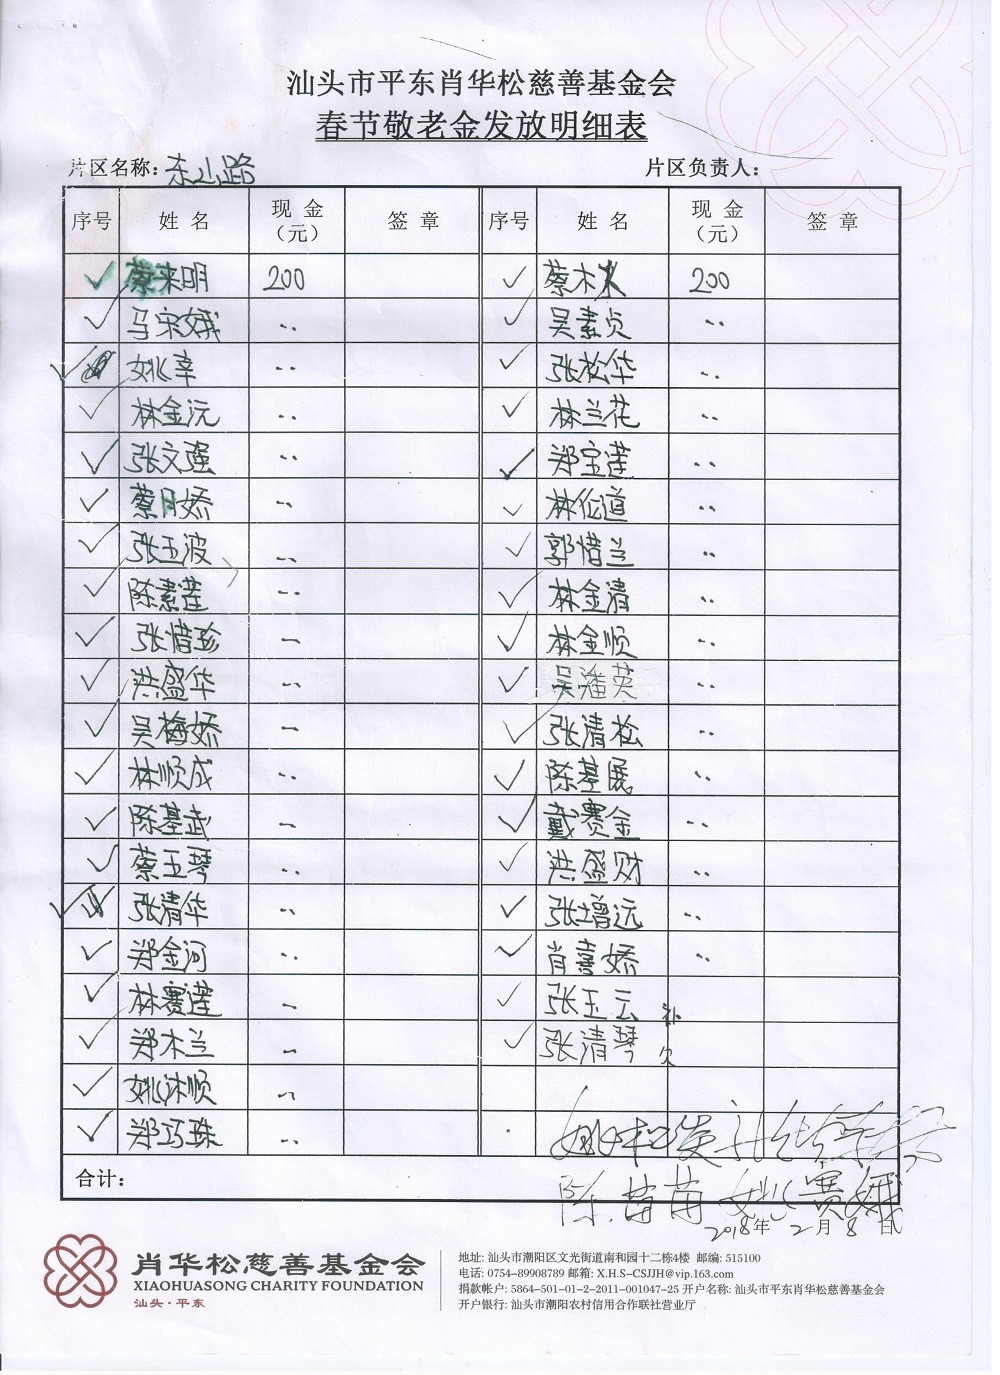 汕头市平东肖华松慈善基金会
春节敬老金发放明细表
片区名称：东山路 片区负责人：
序号 姓名 现金（元） 签章 序号 姓名 现金（元） 签章
✓ 蔡来明 200 ✓ 蔡木水 200
✓ 马宋娥 〃 ✓ 吴素贞 〃
✓ 姚幸 〃 ✓ 张松华 〃
✓ 林金沅 〃 ✓ 林兰花 〃
✓ 张文强 〃 ✓ 郑宝莲 〃
✓ 蔡月娇 〃 ✓ 林伦道 〃
✓ 张玉波 〃 ✓ 郭惜兰 〃
✓ 陈素莲 〃 ✓ 林金清 〃
✓ 张惜珍 〃 ✓ 林金顺 〃
✓ 洪盛华 〃 ✓ 吴潘英 〃
✓ 吴梅娇 〃 ✓ 张清松 〃
✓ 林顺成 〃 ✓ 陈基展 〃
✓ 陈基武 〃 ✓ 戴赛金 〃
✓ 蔡玉琴 〃 ✓ 洪盛财 〃
✓ 张清华 〃 ✓ 张增远 〃
✓ 郑金河 〃 ✓ 肖喜娇 〃
✓ 林赛莲 〃 ✓ 张玉云 补
✓ 郑木兰 〃 ✓ 张清琴 欠
✓ 姚沐顺 〃
✓ 郑巧珠 〃 姚松发
合计： 陈苗苗 姚赛娥
2018年2月8日
肖华松慈善基金会
XIAOHUASONG CHARITY FOUNDATION
汕头·平东
地址: 汕头市潮阳区文光街道南和园十二栋4楼 邮编: 515100
电话: 0754-89908789 邮箱: X.H.S-CSJJH@vip.163.com
捐款帐户: 5864-501-01-2-2011-001047-25 开户名称: 汕头市平东肖华松慈善基金会
开户银行: 汕头市潮阳农村信用合作联社营业厅